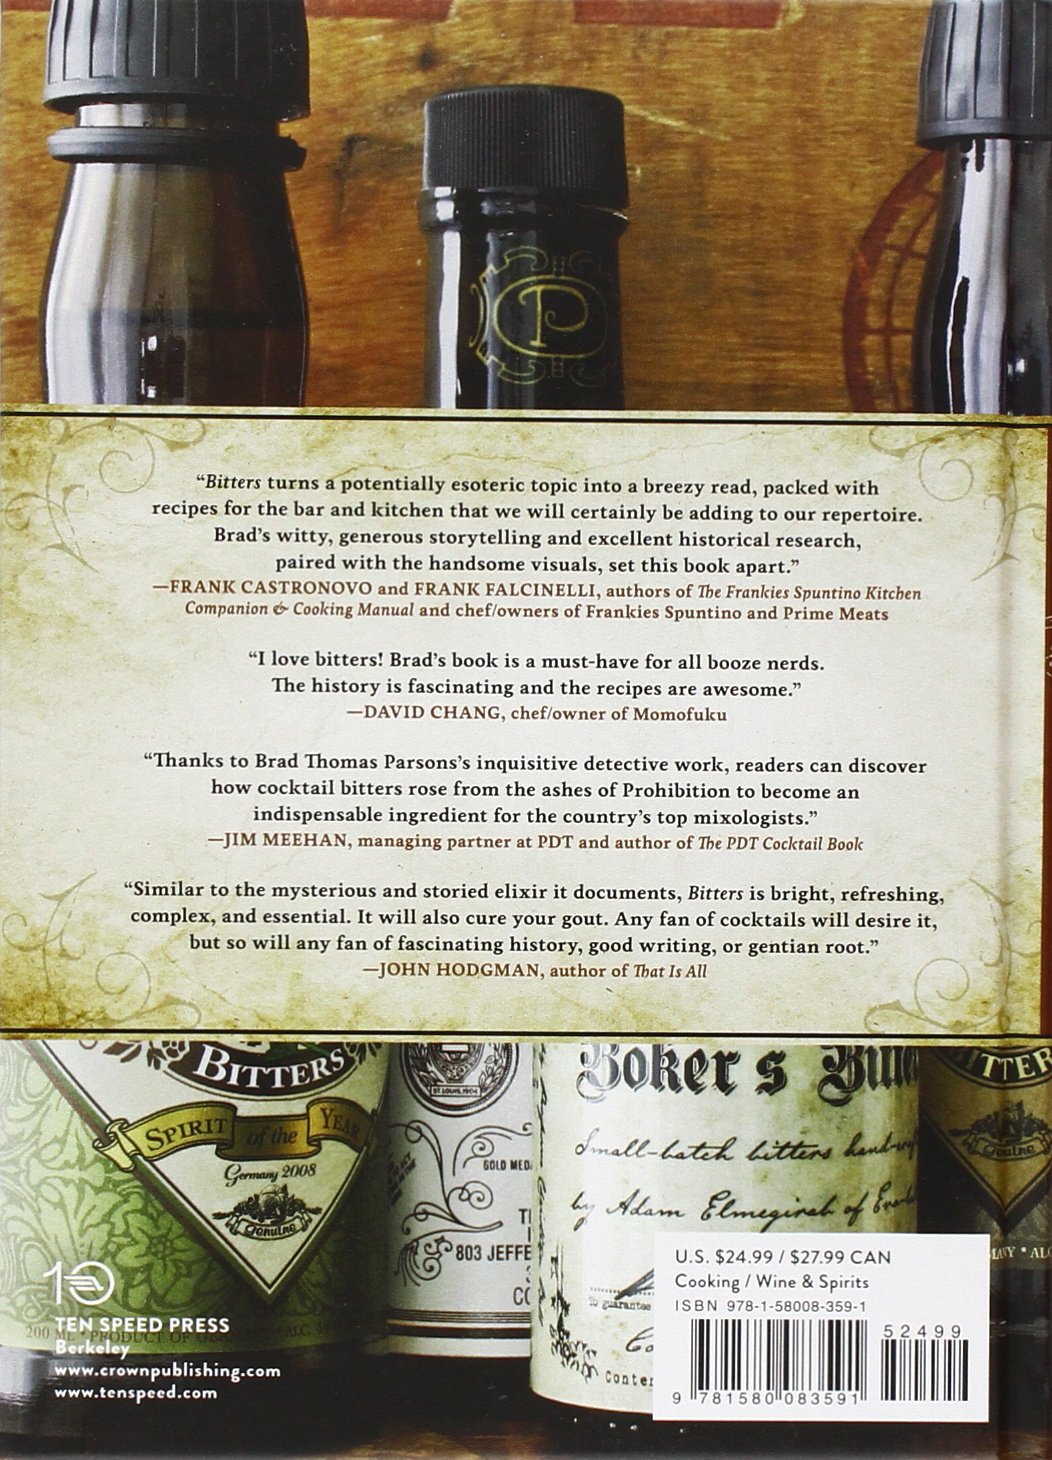 P
“Bitters turns a potentially esoteric topic into a breezy read, packed with
recipes for the bar and kitchen that we will certainly be adding to our repertoire.
Brad’s witty, generous storytelling and excellent historical research,
paired with the handsome visuals, set this book apart.”
—FRANK CASTRONOVO and FRANK FALCINELLI, authors of The Frankies Spuntino Kitchen
Companion & Cooking Manual and chef/owners of Frankies Spuntino and Prime Meats
“I love bitters! Brad’s book is a must-have for all booze nerds.
The history is fascinating and the recipes are awesome.”
—DAVID CHANG, chef/owner of Momofuku
“Thanks to Brad Thomas Parsons’s inquisitive detective work, readers can discover
how cocktail bitters rose from the ashes of Prohibition to become an
indispensable ingredient for the country’s top mixologists.”
—JIM MEEHAN, managing partner at PDT and author of The PDT Cocktail Book
“Similar to the mysterious and storied elixir it documents, Bitters is bright, refreshing,
complex, and essential. It will also cure your gout. Any fan of cocktails will desire it,
but so will any fan of fascinating history, good writing, or gentian root.”
—JOHN HODGMAN, author of That Is All
BITTERS
SPIRIT of the YEAR
Germany 2008
Genuine
200 ML • PRODUCT OF
ST. LOUIS, 1904
GOLD MED
803 JEFFE
CO
Boker's
Small-batch bitters
by Adam Elmegirab of
To guarantee
Conten
TTER
Genuine
U.S. $24.99 / $27.99 CAN
Cooking / Wine & Spirits
ISBN 978-1-58008-359-1
52499
9 781580 083591
10
TEN SPEED PRESS
Berkeley
www.crownpublishing.com
www.tenspeed.com